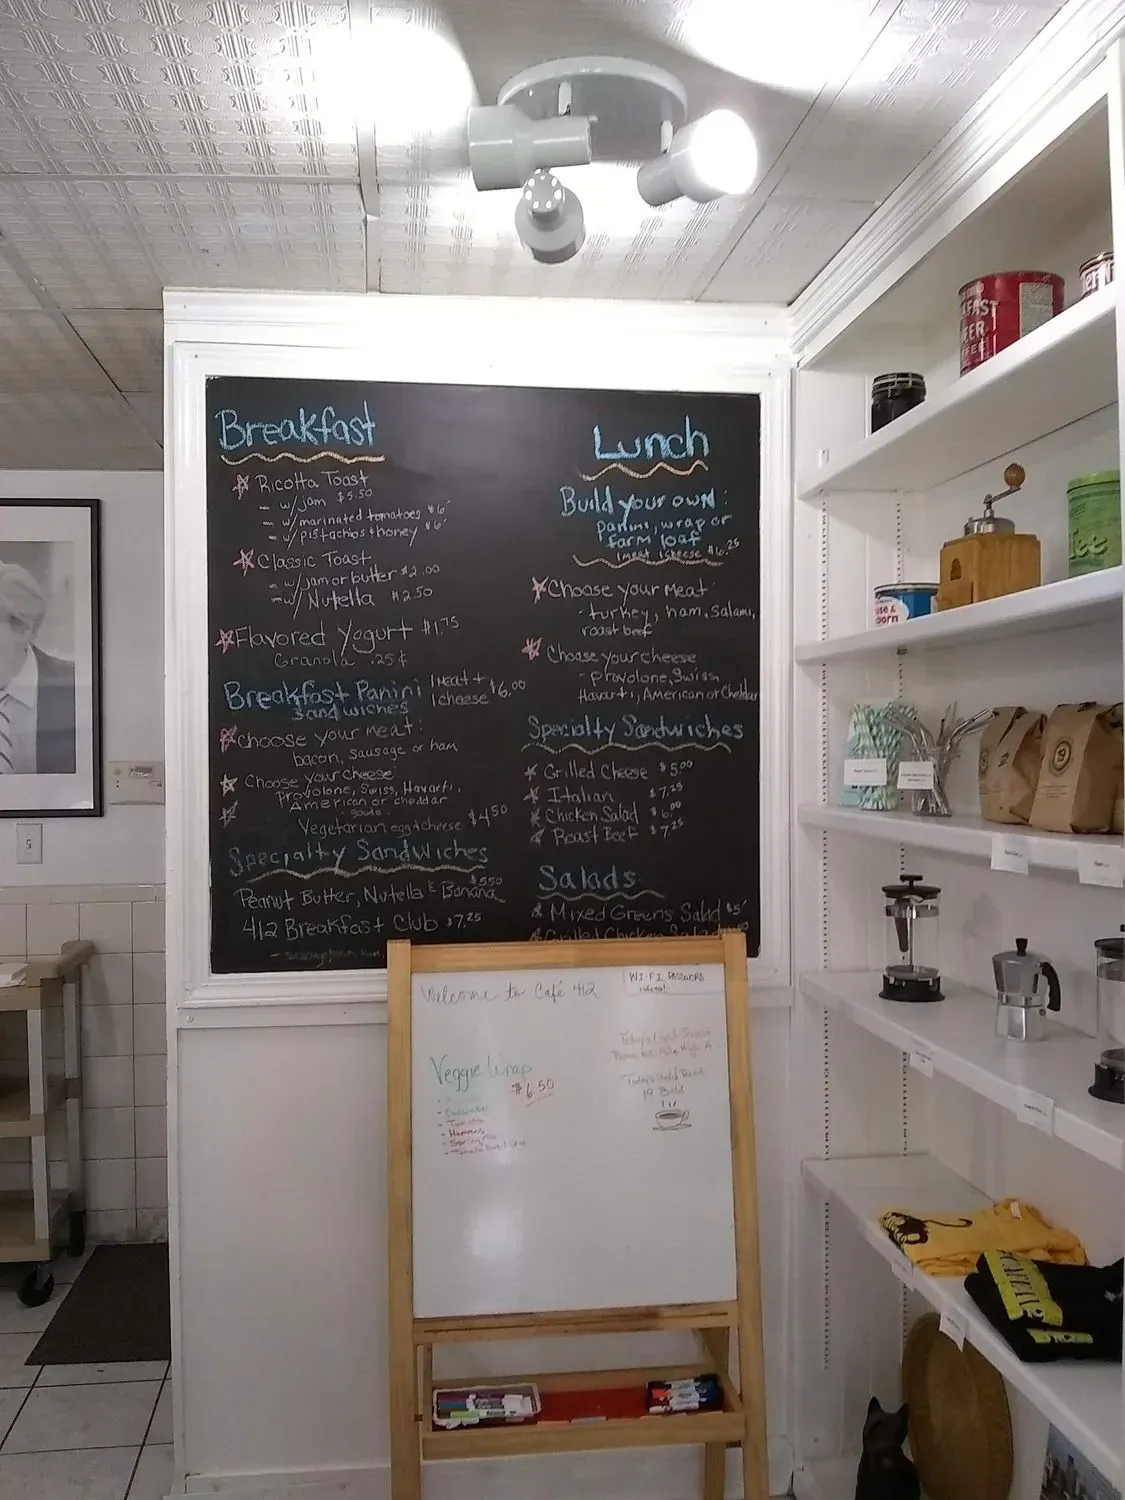 Breakfast
Ricotta Toast
- w/jam $5.50
- w/marinated tomatoes $6
- w/pistachios & honey $6
Classic Toast
- w/jam or butter $2.00
- w/ Nutella $2.50
Flavored Yogurt $1.75
Granola .25¢
Breakfast Panini
Sandwiches
1 Meat +
1 cheese $6.00
Choose your meat:
bacon, sausage or ham
Choose your cheese:
Provolone, Swiss, Havarti,
American or cheddar
Vegetarian egg & cheese $4.50
Specialty Sandwiches
Peanut Butter, Nutella & Banana $5.50
412 Breakfast Club $7.25
Lunch
Build your own:
panini, wrap or
farm loaf
1 meat 1 cheese $6.25
Choose your meat:
- turkey, ham, Salami,
roast beef
Choose your cheese
- Provolone, Swiss
Havarti, American or Cheddar
Specialty Sandwiches
Grilled Cheese $5.00
Italian $7.25
Chicken Salad $6.00
Roast Beef $7.25
Salads
Mixed Greens Salad $5
Grilled Chicken Salad
Welcome to Café 412
WI-FI PASSWORD
Veggie Wrap
$6.50
- Cucumber
- Tomato
- Hummus
19 Bold